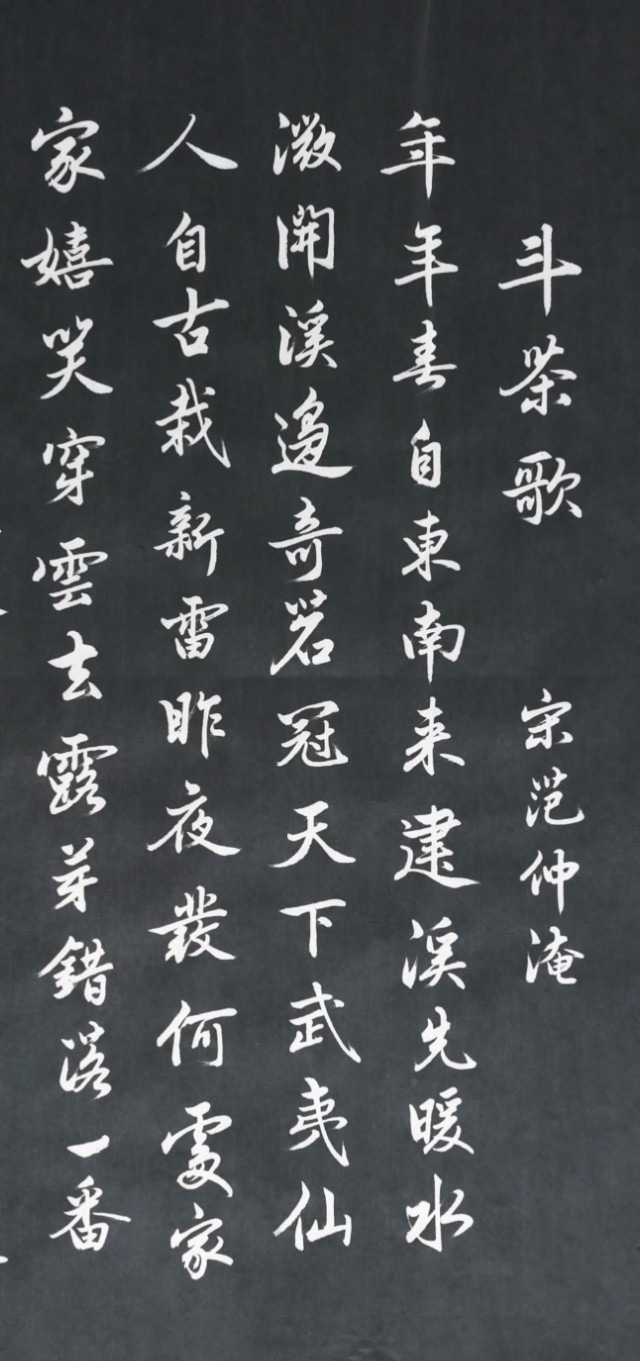 斗茶歌 宋范仲淹
年年春自東南来建溪先暖水
微開溪邊奇茗冠天下武夷仙
人自古栽新雷昨夜發何處家
家嬉笑穿雲去露芽錯落一番